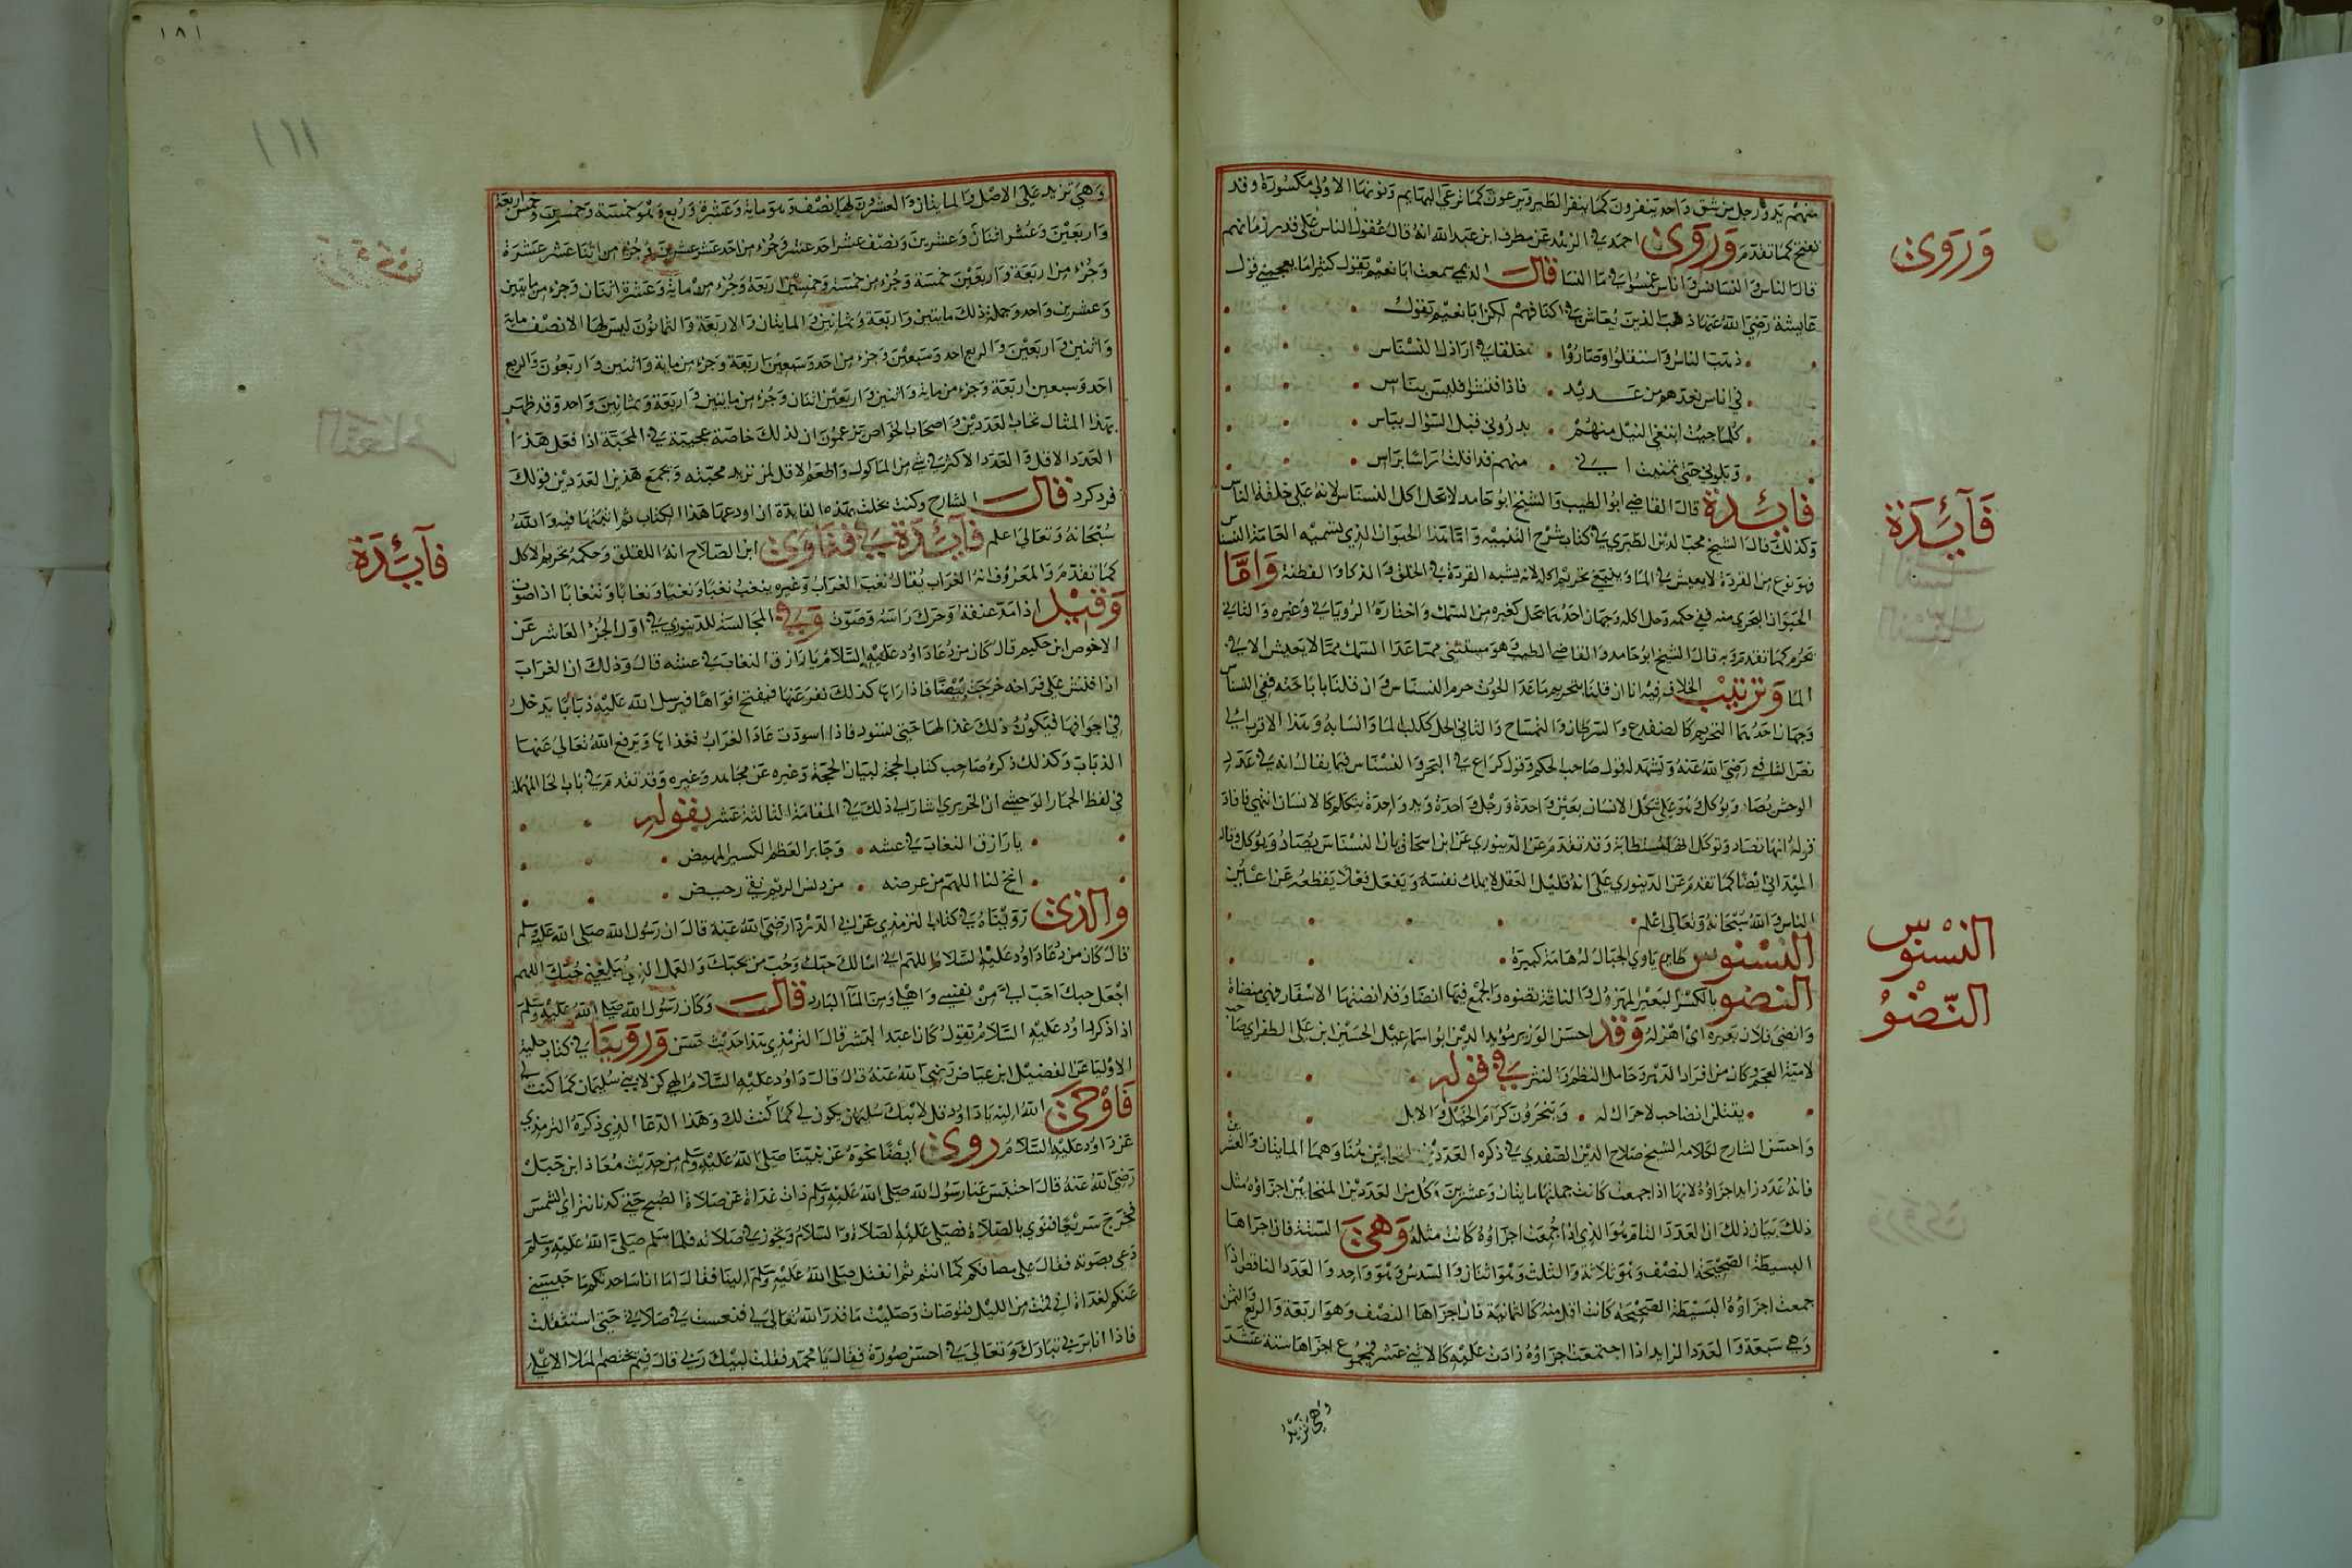 وروى
فآئدة
النسنوس
النضو
منهم يد ورجل من شق واحد ينفرون كما ينفر الطير ويرعون كما ترعى البهايم ونونها الاولى مكسورة وقد
تفتح كما تقدم وروى احمد في الزهد عن مطرف ابن عبد الله انه قال عقول الناس على قدر زمانهم
قال الناس والنسناس واناس غمسوا في ما النسا قال الديمي سمعت ابا نعيم يقول كثيرا ما يعجبني قول
عايشة رضي الله عنها ذهب الذين يعاش في اكنافهم لكن ابا نعيم يقول
ذهب الناس واستقلوا وصاروا خلقا في اراذل النسناس
في اناس بعدهم من عديد فاذا فتشوا فليس بناس
كلما جيت ابتغي النيل منهم بدروني قبل السؤال بياس
وبلوني حتى تمنيت اني منهم قد افلت راسا براس
فايدة قال القاضي ابو الطيب والشيخ ابو حامد لا يحل اكل النسناس لانه على خلقة الناس
وكذلك قال الشيخ محب الدين الطبري في كتاب شرح التنبيه واما هذا الحيوان الذي يسميه العامة النسناس
فهو نوع من القردة لا يعيش في الما وينبغي تحريم اكله لانه يشبه القردة في الخلق والذكا والفطنة واما
الحيوان البحري منه ففي حكمه وحل اكله وجهان احدهما يحل كغيره من السمك واختاره الروياني وغيره والثاني
يحرم كما تقدم وبه قال الشيخ ابو حامد والقاضي الطيب وهو مستثنى مما عدا السمك مما لا يعيش الا في
الما وترتيب الخلاف فيه انا ان قلنا بتحريم ما عدا الحوت حرم النسناس وان قلنا باباحته ففي النسناس
وجهان احدهما التحريم كالضفدع والسرطان والتمساح والثاني الحل ككلب الما وانسانه وهذا الاقرب الى
نص الشافعي رضي الله عنه ويشهد له قول صاحب الحكم وقول كراع في البحر والنسناس فيما يقال انه في عدد
الوحش يصاد ويوكل وهو على شكل الانسان بعين واحدة ورجل واحدة ويد واحدة يتكلم كالانسان انتهى فافاد
قوله انها تصاد وتوكل انها مستطابة وقد تقدم عن الدينوري عن ابن اسحاق بان النسناس يصاد ويوكل وقال
الميداني ايضا كما تقدم عن الدينوري على انه قليل العقل لا يملك نفسه ويفعل فعلا يقطعه عن اعين
الناس والله سبحانه وتعالى اعلم
النسنوس طاير ياوي الجبال له هامة كبيرة
النضو بالكسر البعير المهزول والناقة نضوه والجمع فيهما انضا وقد انضتها الاسفار فهي منضاة
وانضى فلان بعيره اي اهزله وقد احسن الوزير مؤيد الدين ابو اسماعيل الحسين ابن على الطغراي صاحب
لامية العجم وكان من افراد الدهر وحامل النظم والنثر في قوله
يقتلن انضا حب لا حراك له وينحرون كرام الخيل والابل
واحسن الشارح لكلامه الشيخ صلاح الدين الصفدي في ذكره العددين المتحابين هنا وهما المايتان والعشرين
فانه عدد زايد اجزاؤه لانها اذا جمعت كانت جملتها مايتان وعشرين وكل من العددين المتحابين اجزاؤه مثل
ذلك بيان ذلك ان العدد التام هو الذي اذا جمعت اجزاؤه كانت مثله وهي الستة فان اجزاها
البسيطة الصحيحة النصف وهو ثلاثة والثلث وهو اثنان والسدس وهو واحد والعدد الناقص اذا
جمعت اجزاؤه البسيطة الصحيحة كانت اقل منه كالثمانية فان اجزاها النصف وهو اربعة والربع والثمن
وهي سبعة والعدد الزايد اذا اجتمعت اجزاؤه زادت عليه كالاثني عشر فمجموع اجزاها ستة عشر
وهي تزيد
١٨١
١٨١
فآئدة
وهي تزيد على الاصل والمايتان والعشرون لها نصف وهو ماية وعشرة وربع وهو خمسة وخمسين وخمس اربعة
واربعين وعشر اثنان وعشرين ونصف عشر احد عشر وجزء من احد عشر عشرين وجزء من اثنا عشر عشرة
وجزء من اربعة واربعين خمسة وجزء من خمسة وخمسين اربعة وجزء من ماية وعشرة اثنان وجزء من مايتين
وعشرين واحد وجملة ذلك مايتين واربعة وثمانين والمايتان والاربعة والثمانون ليس لها الا نصف ماية
واثنين واربعين والربع احد وسبعين وجزء من احد وسبعين اربعة وجزء من ماية واثنين واربعون والربع
احد وسبعين اربعة وجزء من ماية واثنين واربعين اثنان وجزء من مايتين واربعة وثمانين واحد وقد ظهر
بهذا المثال تحاب العددين واصحاب الخواص يزعمون ان لذلك خاصة عجيبة في المحبة اذا فعل هذا
العدد الاقل والعدد الاكثر في شي من الماكول واطعم الاقل لمن تريد محبته ويجمع هذين العددين قولك
فرد كرد قال الشارح وكنت بخلت بهذه الفايدة ان اودعها هذا الكتاب ثم اثبتها فيه والله
سبحانه وتعالى اعلم فآئدة في فتاوى ابن الصلاح انه اللقلق وحكمه تحريم الاكل
كما تقدم والمعروف انه الغراب يقال نغب الغراب وغيره ينغب نغبا ونغيبا ونغابا وتنغابا اذا صوت
وقيل اذا مد عنقه وحرك راسه وصوت وفي المجالسة للدينوري في اول الجزء العاشر عن
الاخوص ابن حكيم قال كان من دعا داود عليه السلام يا رازق النغاب في عشه قال وذلك ان الغراب
اذا فقش على فراخه خرجت بيضا فاذا راها كذلك نفر عنها فتفتح افواها فيرسل الله عليه ذبابا يدخل
في اجوافها فيكون ذلك غذا لها حتى تسود فاذا اسودت عاد الغراب فغذاها ويرفع الله تعالى عنها
الذباب وكذلك ذكره صاحب كتاب الحجة لبيان الحجة وغيره عن مجاهد وغيره وقد تقدم في باب الحا المهملة
في لفظ الحمار الوحشي ان الحريري اشار الى ذلك في المقامة الثالثة عشر بقوله
يا رازق النغاب في عشه وجابر العظم الكسير المهيض
اتح لنا اللهم من عرضه من دنس الريم نقي رحيض
والذي رويناه في كتاب الترمذي عن ابي الدردا رضي الله عنه قال ان رسول الله صلى الله عليه وسلم
قال كان من دعا داود عليه السلام اللهم اني اسالك حبك وحب من يحبك والعمل الذي يبلغني حبك اللهم
اجعل حبك احب الي من نفسي واهلي ومن المآ البارد قال وكان رسول الله صلى الله عليه وسلم
اذا ذكر داود عليه السلام يقول كان اعبد البشر قال الترمذي هذا حديث حسن وروينا في كتاب حلية
الاوليا عن الفضيل ابن عياض رضي الله عنه قال قال داود عليه السلام الهي كن لابني سليمان كما كنت لي
فاوحى الله اليه يا داود قل لابنك سليمان يكون لي كما كنت لك وهذا الدعا الذي ذكره الترمذي
عن داود عليه السلام روى ايضا نحوه عن نبينا صلى الله عليه وسلم من حديث معاذ ابن جبل
رضي الله عنه قال احتبس عنا رسول الله صلى الله عليه وسلم ذات غداة عن صلاة الصبح حتى كدنا نتراي الشمس
فخرج سريعا فنوي بالصلاة فصلى عليه الصلاة والسلام وتجوز في صلاته فلما سلم صلى الله عليه وسلم
دعى بصوته فقال على مصافكم كما انتم ثم انفتل صلى الله عليه وسلم الينا فقال اما انا ساحدثكم ما حبسني
عنكم الغداة اني قمت من الليل فتوضات وصليت ما قدر الله تعالى لي فنعست في صلاتي حتى استثقلت
فاذا انا بربي تبارك وتعالى في احسن صورة فقال يا محمد فقلت لبيك ربي قال فيم يختصم الملا الاعلى